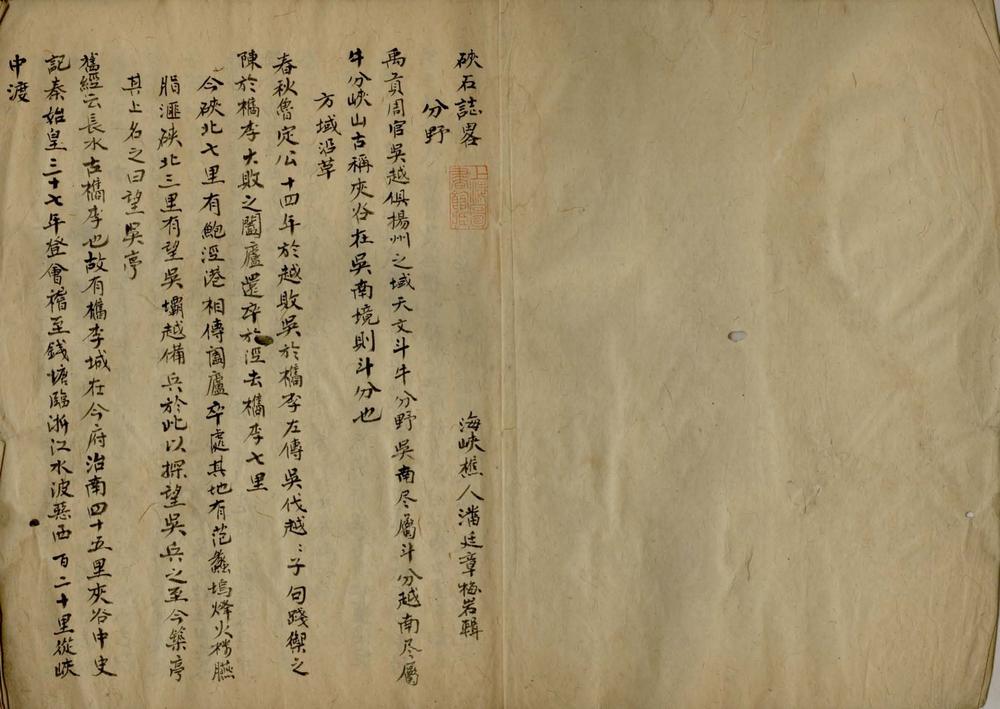 硤石誌畧
海峽樵人潘廷章梅岩輯
上海圖書館藏
分野
禹貢周官吳越俱揚州之域天文斗牛分野吳南尽屬斗分越南尽屬
牛分峽山古稱夾谷在吳南境則斗分也
方域沿革
春秋魯定公十四年於越敗吳於檇李左傳吳伐越：子句踐禦之
陳於檇李大敗之闔廬還卒於陘去檇李七里
今硤北七里有鮑涇港相傳闔廬卒處其地有范蠡塢烽火樓臙
脂滙硤北三里有望吳壩越備兵於此以探望吳兵之至今築亭
其上名之曰望吳亭
舊經云長水古檇李也故有檇李城在今府治南四十五里夾谷中史
記秦始皇三十七年登會稽至錢塘臨浙江水波惡西百二十里從峽
中渡